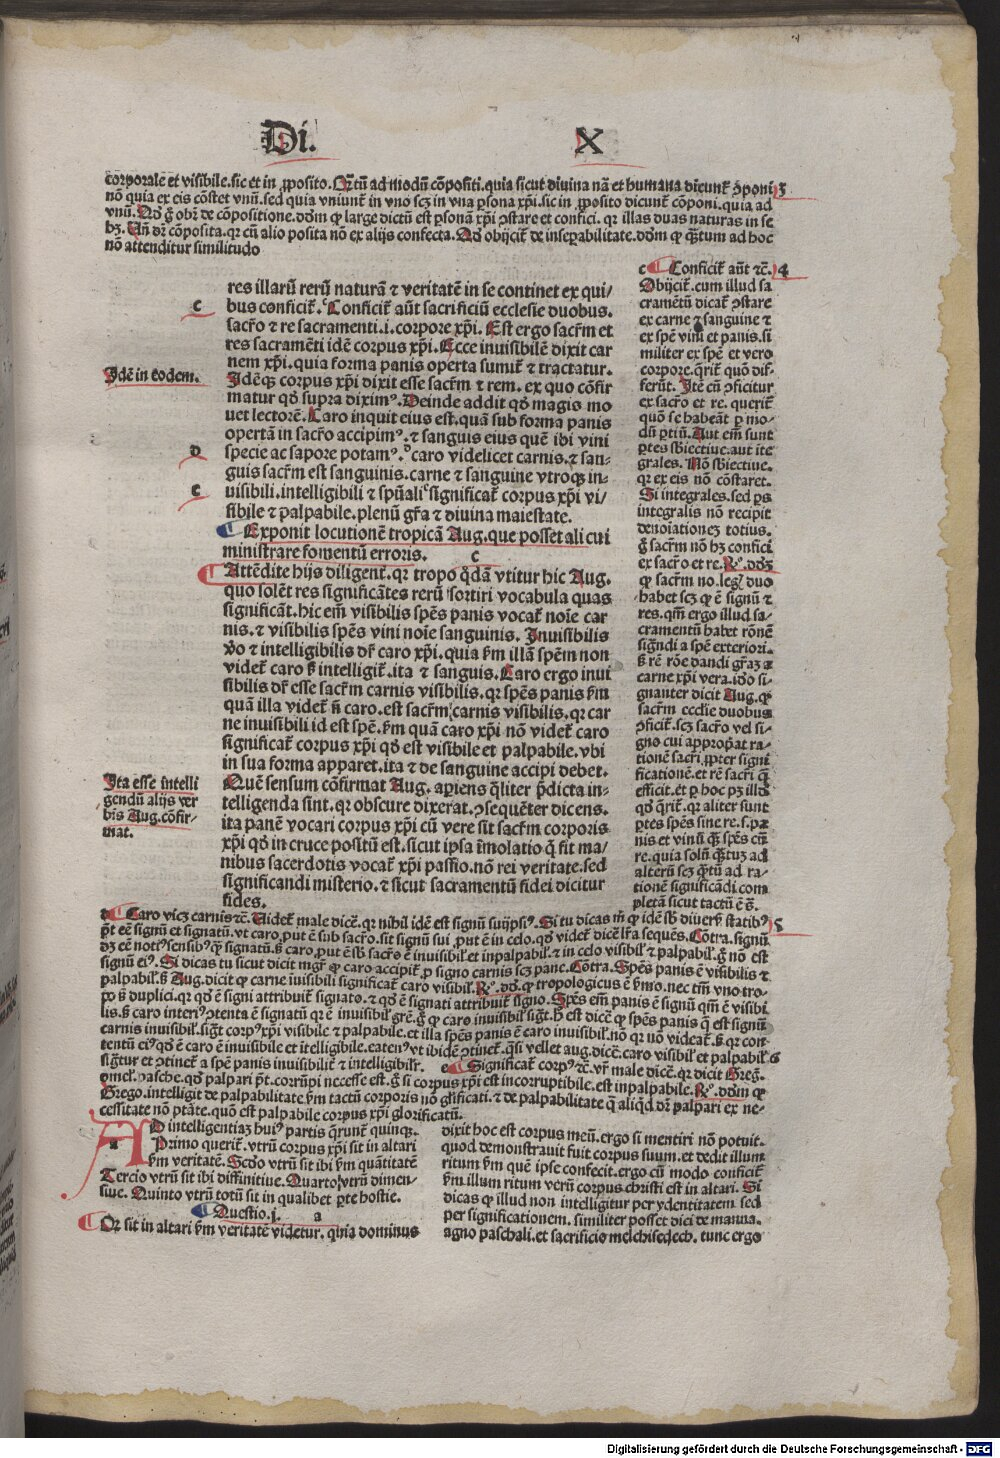 Di. X
corporale et visibile. sic et in ꝓposito. Q̃tũ ad modũ cõpositi. quia sicut diuina nã et humana dicunt̃ ꝯponi 3
nõ quia ex eis cõstet vnũ. sed quia vniunt̃ in vno scꝫ in vna ꝑsona xp̃i. sic in ꝓposito dicunt̃ cõponi. quia ad
vnũ. Ad g̃ obã de cõpositione. dõm ꝙ large dictũ est ꝑsonã xp̃i ꝯstare et confici. qꝛ illas duas naturas in se
hꝫ. Añ dr̃ cõposita. qꝛ cũ alio posita nõ ex alijs confecta. Ad obijcit̃ de inseꝑabilitate. dõm ꝙ q̃tum ad hoc
nõ attenditur similitudo
res illarũ rerũ naturã ⁊ veritatẽ in se continet ex qui/
c bus conficit̃. Conficit̃ aũt sacrificiũ ecclesie duobus.
sacr̃o ⁊ re sacramenti. i. corpore xp̃i. Est ergo sacr̃m et
res sacramẽti idẽ corpus xp̃i. Ecce inuisibilẽ dixit car
nem xp̃i. quia forma panis operta sumit̃ ⁊ tractatur.
Idẽ in eodem.
Idẽqꝫ corpus xp̃i dixit esse sacr̃m ⁊ rem. ex quo cõfir
matur qd̃ supra diximꝰ. Deinde addit qd̃ magis mo
uet lectorẽ. Caro inquit eius est. quã sub forma panis
opertã in sacr̃o accipimꝰ. ⁊ sanguis eius quẽ ibi vini
d specie ac sapore potamꝰ. caro videlicet carnis. ⁊ san-
guis sacr̃m est sanguinis. carne ⁊ sanguine vtroqꝫ in-
e uisibili. intelligibili ⁊ spũali significat̃ corpus xp̃i vi/
sibile ⁊ palpabile. plenũ gr̃a ⁊ diuina maiestate.
Exponit locutionẽ tropicã Aug. que posset ali cui
ministrare fomentũ erroris. c
Attẽdite hijs diligent̃. qꝛ tropo q̃dã vtitur hic Aug.
quo solẽt res significãtes rerũ sortiri vocabula quas
significãt. hic em̃ visibilis spẽs panis vocat̃ noĩe car
nis. ⁊ visibilis spẽs vini noĩe sanguinis. Inuisibilis
v̓o ⁊ intelligibilis dr̃ caro xp̃i. quia ẜm illã spẽm non
videt̃ caro ß intelligit̃. ita ⁊ sanguis. Caro ergo inui
sibilis dr̃ esse sacr̃m carnis visibilis. qꝛ spẽs panis ẜm
quã illa videt̃ ñ caro. est sacr̃m carnis visibilis. qꝛ car
ne inuisibili id est spẽ. ẜm quã caro xp̃i nõ videt̃ caro
significat̃ corpus xp̃i qd̃ est visibile et palpabile. vbi
in sua forma apparet. ita ⁊ de sanguine accipi debet.
Ita esse intelli
gendũ alijs ver
bis Aug. cõfir-
mat.
Quẽ sensum cõfirmat Aug. aꝑiens q̃liter p̃dicta in-
telligenda sint. qꝛ obscure dixerat. ꝯsequẽter dicens.
ita panẽ vocari corpus xp̃i cũ vere sit sacr̃m corporis
xp̃i qd̃ in cruce positũ est. sicut ipsa ĩmolatio q̃ fit ma/
nibus sacerdotis vocat̃ xp̃i passio. nõ rei veritate. sed
significandi misterio. ⁊ sicut sacramentũ fidei dicitur
fides.
c Conficit̃ aũt ⁊c. 4
Obijcit̃. cum illud sa
cramẽtũ dicat̃ ꝯstare
ex carne ⁊ sanguine ⁊
ex spẽ vini et panis. si
militer ex spẽ et vero
corpore. q̃rit̃ quõ dif-
ferũt. Itẽ cũ ꝯficitur
ex sacr̃o et re. querit̃
quõ se habeãt ꝑ mo-
dũ ꝑtiũ. Aut em̃ sunt
ꝑtes sb̃iectiue. aut ĩte
grales. Nõ sb̃iectiue.
qꝛ ex eis nõ cõstaret.
Si integrales. sed ꝑs
integralis nõ recipit
denoĩationeꝫ totius.
g̃ sacr̃m nõ hꝫ confici
ex sacr̃o et re. Rꝰ. dõꝫ
ꝙ sacr̃m no. legꝭ duo
habet scꝫ ꝙ ẽ signũ ⁊
res. qm̃ ergo illud sa-
cramentũ habet rõnẽ
signãdi a spẽ exteriori.
ß rẽ rõe dandi gr̃aꝫ a
carne xp̃i vera. iõo si-
gnanter dicit Aug. ꝙ
sacr̃m ecclie duobus
ꝯficit̃. scꝫ sacr̃o vel si-
gno cui appropat̃ ra-
tionẽ sacri. ꝓpter signi
ficationẽ. et rẽ sacri q̃
efficit. et ꝑ hoc pꝫ illd̃
qd̃ q̃rit̃. qꝛ aliter sunt
ꝑtes spẽs sine re. s. pa
nis et vini. q̃ spẽs cũ
re. quia solũ q̃tuꝫ ad
alterũ scꝫ q̃tũ ad ra-
tionẽ significãdi com
pletã sicut tactũ ẽ s̃.
d Caro vicꝫ carnis ⁊c. Videt̃ male dicẽ. qꝛ nihil idẽ est signũ suijpsiꝰ. Si tu dicas m̃ ꝙ idẽ sb̃ diuersꝭ statibꝰ 5
p̃t eẽ signũ et signatũ. vt caro put ẽ sub sacr̃o. sit signũ sui put ẽ in celo. qd̃ videt̃ dicẽ lr̃a sequẽs. Cõtra. signũ
dꝫ eẽ notiꝰ sensibꝰ ꝙ signatũ. ß caro. put ẽ sb̃ sacr̃o ẽ inuisibil̃ et inpalpabil̃. ⁊ in celo visibil̃ ⁊ palpabil̃. g̃ nõ est
signũ eiꝰ. Si dicas tu sicut dicit mgr̃ ꝙ caro accipit̃ ꝓ signo carnis scꝫ pane. Cõtra. Spẽs panis ẽ visibilis ⁊
palpabil̃. ß Aug. dicit ꝙ carne inuisibili significat̃ caro visibil̃. Rꝰ. dõ. ꝙ tropologicus ẽ ẜmo. nec tm̃ vno tro-
po ß duplici. qꝛ qd̃ ẽ signi attribuit̃ signato. ⁊ qd̃ ẽ signati attribuit̃ signo. Spẽs em̃ panis ẽ signũ qm̃ ẽ visibi
lis. ß caro interiꝰ ꝯtenta ẽ signatũ qꝛ ẽ inuisibil̃ gr̃e. g̃ ꝙ caro inuisibil̃ sigt̃. h̃ est dicẽ ꝙ spẽs panis q̃ est signũ
carnis inuisibil̃. sigt̃ corpꝰ xp̃i visibile ⁊ palpabile. et illa spẽs panis ẽ caro inuisibil̃. nõ qꝛ nõ videat̃. ß qꝛ con-
tentũ eiꝰ qd̃ ẽ caro ẽ inuisibile et ĩtelligibile. eatenꝰ vt ibidẽ ꝯtinet̃. q̃si vellet aug. dicẽ. caro visibil̃ et palpabil̃ 6
sig̃tur et ꝯtinet̃ a spẽ panis inuisibilit̃ ⁊ intelligibilr̃. e Significat̃ corpꝰ ⁊c. vr̃ male dicẽ. qꝛ dicit Greg̃.
omel̃. pasche. qd̃ palpari p̃t. corrũpi necesse est. g̃ si corpus xp̃i est incorruptibile. est inpalpabile. Rꝰ. dõm ꝙ
Grego. intelligit de palpabilitate ẜm tactũ corporis nõ gl̃ificati. ⁊ de palpabilitate q̃ aliqd̃ dr̃ palpari ex ne-
cessitate nõ ptãte. quõ est palpabile corpus xp̃i glorificatũ.
AD intelligentiaꝫ huiꝰ partis q̃runt̃ quinqꝫ.
a Primo querit̃. vtrũ corpus xp̃i sit in altari
ẜm veritatẽ. Scd̃o vtrũ sit ibi ẜm quãtitatẽ
Tercio vtrũ sit ibi diffinitiue. Quarto vtrũ dimen-
siue. Quinto vtrũ totũ sit in qualibet ꝑte hostie.
Questio. j. a
Or sit in altari ẜm veritatẽ videtur. quia dominus
dixit hoc est corpus meũ. ergo si mentiri nõ potuit.
quod demonstrauit fuit corpus suum. et dedit illum
ritum ẜm quẽ ipse confecit. ergo cũ modo conficit̃
ẜm illum ritum verũ corpus christi est in altari. Si
dicas ꝙ illud non intelligitur per ydentitatem sed
per significationem. similiter posset dici de manna.
agno paschali. et sacrificio melchisedech. tunc ergo
Digitalisierung gefördert durch die Deutsche Forschungsgemeinschaft - DFG